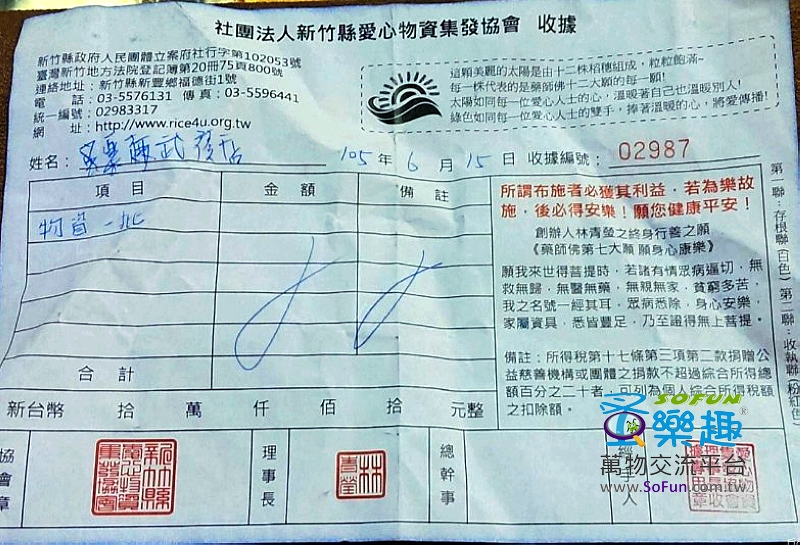 社團法人新竹縣愛心物資集發協會 收據
新竹縣政府人民團體立案府社行字第102053號
臺灣新竹地方法院登記簿第20冊75頁800號
連絡地址：新竹縣新豐鄉福德街1號
電 話：03-5576131 傳真：03-5596441
統一編號：02983317
網 址：http://www.rice4u.org.tw
這顆美麗的太陽是由十二株稻穗組成，粒粒飽滿~
每一株代表的是藥師佛十二大願的每一願！
太陽如同每一位愛心人士的心，溫暖著自己也溫暖別人！
綠色如同每一位愛心人士的雙手，捧著溫暖的心，將愛傳播！
姓名： 105年 6 月 15 日 收據編號：02987
項目 金額 備註
物資一批
合計
新台幣 拾 萬 仟 佰 拾 元整
所謂布施者必獲其利益，若為樂故
施，後必得安樂！願您健康平安！
創辦人林青螢之終身行善之願
《藥師佛第七大願 願身心康樂》
願我來世得菩提時，若諸有情眾病逼切，無
救無歸，無醫無藥，無親無家，貧窮多苦，
我之名號一經其耳，眾病悉除，身心安樂，
家屬資具，悉皆豐足，乃至證得無上菩提。
備註：所得稅第十七條第三項第二款捐贈公
益慈善機構或團體之捐款不超過綜合所得總
額百分之二十者，可列為個人綜合所得稅額
之扣除額。
第一聯：存根聯(白色) 第二聯：收執聯(粉紅色)
協會章
理事長
林
青螢
總幹事
經手人
SOFUN
樂趣®
萬物交流平台
www.SoFun.com.tw